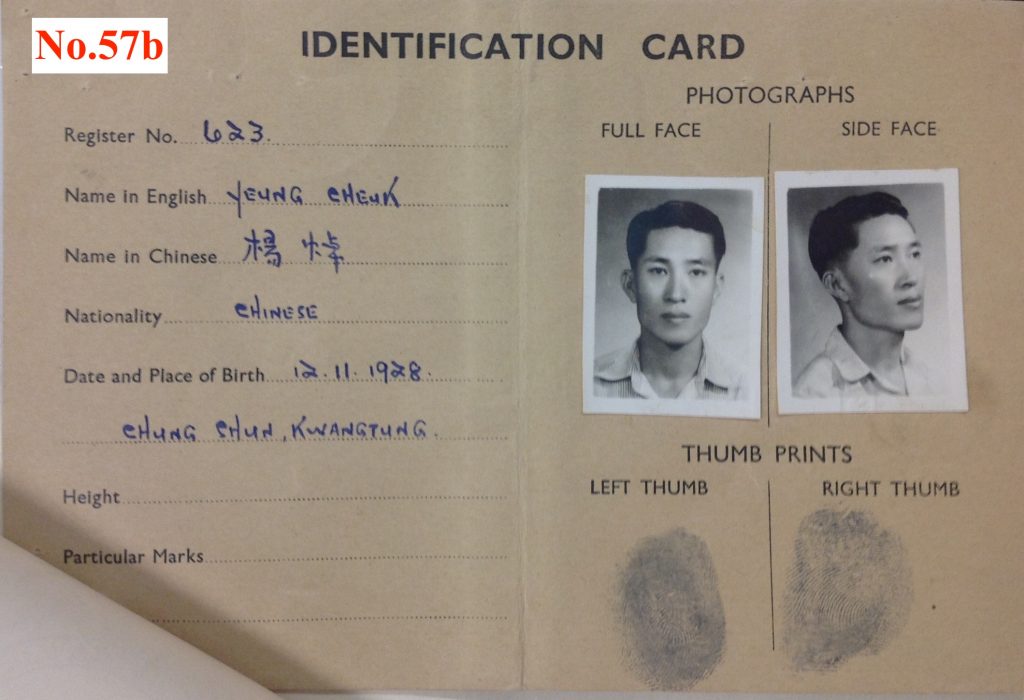 No.57b
IDENTIFICATION CARD
Register No. 623.
Name in English YEUNG CHEUK
Name in Chinese 楊 焯
Nationality CHINESE
Date and Place of Birth 12.11.1928.
CHUNG SHUN, KWANGTUNG.
Height
Particular Marks
PHOTOGRAPHS
FULL FACE
SIDE FACE
THUMB PRINTS
LEFT THUMB
RIGHT THUMB